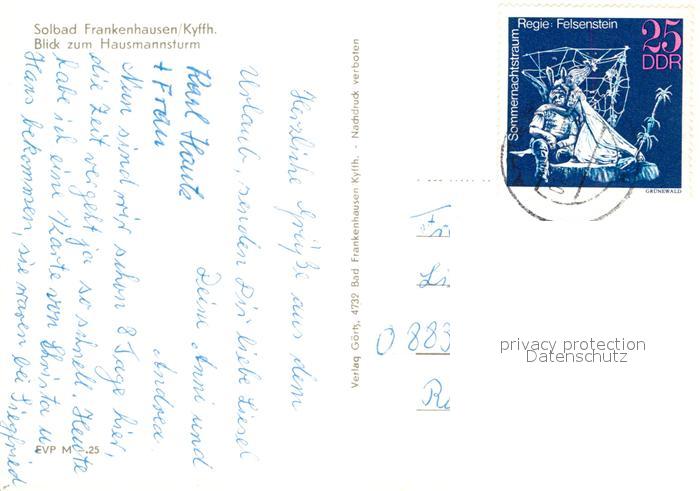 Solbad Frankenhausen/Kyffh.
Blick zum Hausmannsturm
Herzliche Grüße aus dem
Urlaub, senden Dir liebe Liesel
Deine Anni und
Andrea.
Karl Haute
+ Frau
Nun sind wir schon 8 Tage hier,
die Zeit vergeht ja so schnell. Heute
habe ich eine Karte von Christa u.
Hans bekommen, sie waren bei Siegfried
EVP M -.25
Verlag Görtz, 4732 Bad Frankenhausen Kyffh. - Nachdruck verboten
Sommernachtstraum
Regie: Felsenstein
25
DDR
GRÜNEWALD
Li
0 883
privacy protection
Datenschutz